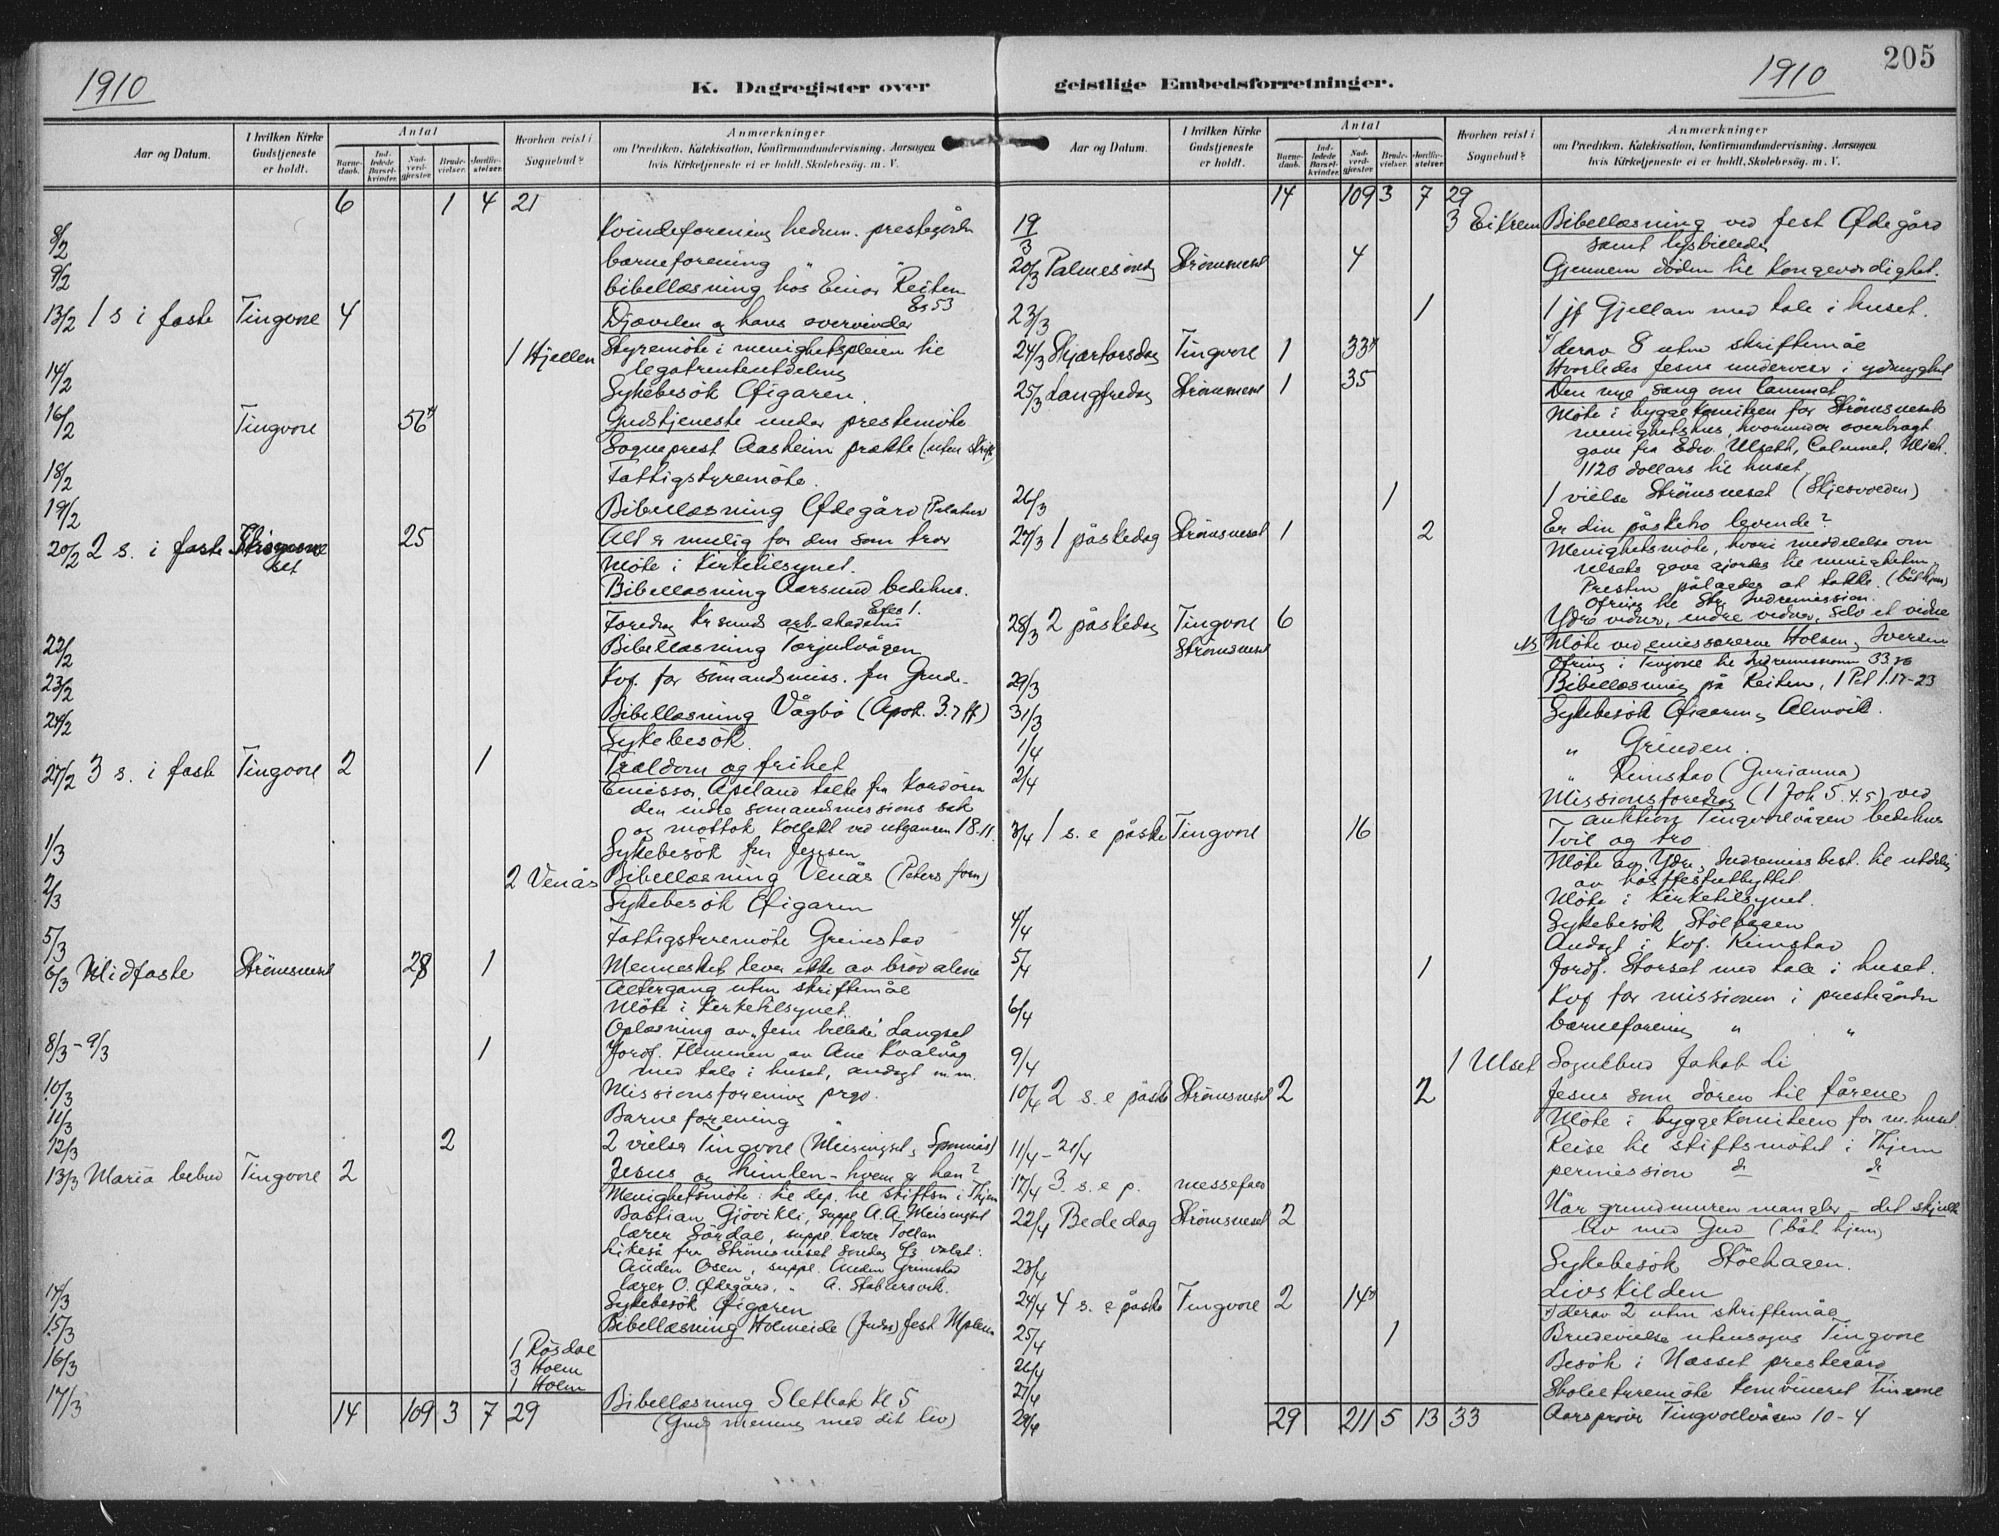 1910
K. Dagregister over
Aar og Datum.
I hvilken Kirke Gudstjeneste er holdt.
Antal
Barne-daab.
Ind-ledede Barsel-kvinder.
Nad-verd-gjæster.
Brude-vielser.
Jordfæ-stelser.
Hvorhen reist i Sognebud?
Anmærkninger
om Prædiken, Katekisation, Konfirmandundervisning. Aarsagen
hvis Kirketjeneste ei er holdt. Skolebesøg. m. V.
6 1 4 21
8/2 Kvindeforening hedn. prestegården
9/2 barneforening "
bibellæsning hos Einar Reiten
Es 53
13/2 1 s i faste Tingvoll 4 Djævelen og hans overvinder
1 Hjellen Styremöte i menighetspleien til
14/2 legatrenteutdeling
Sykebesök Øigaren.
16/2 Tingvoll 56 Gudstjeneste under prestemöte
Sogneprest Aasheim prækte (uten skrift)
18/2 Fattigstyremöte.
19/2 Bibellæsning Ødegård Pilatus
20/2 2 s. i faste 25 Alt er mulig for den som tror
Möte i Kirketilsynet.
Bibellæsning Aarsund bedehus.
Efes 1.
Foredrag Kr.sunds arb.akademi
22/2 Bibellæsning Torjulvågen
23/2 Kvf. for sömandsmiss. fru Grude
24/2 Bibellæsning Vågbö (Apok. 3.7 ff)
Sykebesök.
27/2 3 s. i faste Tingvoll 2 1 Trældom og frihet
Emissær Apeland talte fra Kordören
den indre sömandsmissions sak
og mottok kollekt ved utgangen 18.11
1/3 Sykebesök fru Jenssen
2 Venås Bibellæsning Venås (Peters forn)
2/3 Sykebesök Øigaren
5/3 Fattigstyremöte Grimstad
6/3 Midfaste Strömsneset 28 1 Mennesket lever ikke av bröd alene
Altergang uten skriftemål
Möte i Kirketilsynet.
Oplæsning av "Jesu billede" Langset
8/3 - 9/3 1 Jordf. Flemmen av Ane Kvalvåg
med tale i huset, andagt m.m.
10/3 Missionsforening prgd.
11/3 Barneforening "
12/3 2 2 vielser Tingvoll (Meisingset, Sponnås)
13/3 Mariä bebud Tingvoll 2 Jesus og himlen - hvem er han?
Menighetsmöte: til dep. til stiftsm i Thjem
Bastian Gjövikli, suppl. A.A. Meisingset
lærer Sördal, suppl. lærer Tollan
Likeså fra Strömsneset söndag 6/3 valgt:
Anders Osen, suppl. Anders Grimstad
lærer O. Ødegård, " A. Stabbersvik.
14/3 Sykebesök Øigaren
15/3 Bibellæsning Holmeide (Judas) fest M
1 Rösdal
16/3 3 Holm
1 Holm
17/3 Bibellæsning Sletbak kl 5
14 109 3 7 29 (Guds mening med dit liv)
geistlige Embedsforretninger.
1910
205
Aar og Datum.
I hvilken Kirke Gudstjeneste er holdt.
Antal
Barne-daab.
Ind-ledede Barsel-kvinder.
Nad-verd-gjæster.
Brude-vielser.
Jordfæ-stelser.
Hvorhen reist i Sognebud?
Anmærkninger
om Prædiken, Katekisation, Konfirmandundervisning. Aarsagen
hvis Kirketjeneste ei er holdt. Skolebesøg. m. V.
14 109 3 7 29
19/3 3 Eikrem Bibellæsning ved fest Ødegård
samt lysbilleder
20/3 Palmesöndag Strömsneset 4 Gjennem döden til kongeværdighet.
23/3 1 1 jf Gjellan med tale i huset.
24/3 Skjærtorsdag Tingvoll 1 33 derav 8 uten skriftemål
Hvorledes Jesus underviser i ydmyghet
25/3 Langfredag Strömsneset 1 35 Den nye sang om lammet
Möte i byggekomiteen for Strömsnesets
menighetshus, hvorunder overbragt
gave fra Edv. Ulseth, Calumet, Mich.
1120 dollars til huset.
26/3 1 1 vielse Strömsneset (Skjesvolden)
27/3 1 påskedag Strömsneset 1 2 Er din påsketro levende?
Menighetsmöte, hvori meddelelse om
Ulsets gave gjordes til menigheten.
Presten pålagdes at takke. (båt hjem)
Ofring til Indremission.
28/3 2 påskedag Tingvoll 6 Ydre vidner, indre vidner, selv et vidne
Strömsneset Möte ved emissærerne Holsen, Iversen
Ofring i Tingvoll til Indremissionen 33.70
29/3 Bibellæsning på Reiten, 1 Pet 1.17-23
31/3 Sykebesök Øigaren, Almvik.
1/4 " Grinden.
2/4 " Rimstad (Gurianna)
Missionsforedrag (1 Joh 5.4.5) ved
auktion Tingvoldvågen bedehus
3/4 1 s. e påske Tingvoll 16 Tvil og tro
Möte av Ydre, Indremiss best. til utdeling
av höstfestutbyttet
Möte i kirketilsynet.
4/4 Sykebesök Stölhagen
Andagt i Kvf. Rimstad
5/4 1 Jordf. Storset med tale i huset.
6/4 Kvf for missionen i prestegården
barneforening " "
9/4 1 Ulset Sognebud Jakob Li
10/4 2 s. e påske Strömsneset 2 2 Jesus som dören til fårene
Möte i byggekomiteen for m.huset.
11/4 - 21/4 Reise til stiftsmötet i Thjem
permission d d
17/4 3. s. e p. messefald
22/4 Bededag Strömsneset 2 Når grundmuren mangler - det skjulte
liv med Gud (båt hjem)
23/4 Sykebesök Stölhagen.
24/4 4 s. e påske Tingvoll 2 14 Livskilden
derav 2 uten skriftemål
25/4 1 Brudevielse utensogns Tingvoll
26/4 Besök i Nesset prestegård
27/4 Skolestyremöte kombineret Tingvoll
28/4 Aarspröve Tingvoldvågen 10-4
29 211 5 13 33